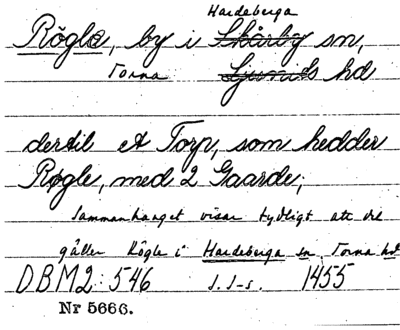 Hardeberga
Rögle, by i Skårby sn,
Torna Ljunits hd
dertil et Torp, som hedder
Røgle, med 2 Gaarde,
Sammanhanget visar tydligt att det
gäller Rögle i Hardeberga sn Torna hd
DBM2: 546 s.1-s. 1455
Nr 5666.